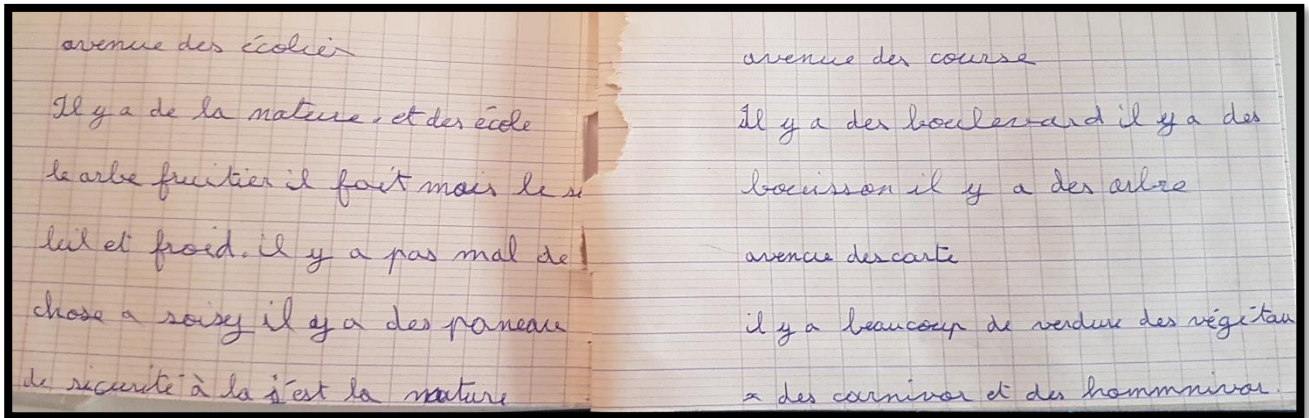 avenue des écolier
Il y a de la nature, et des école
le arbe fruitier il fait mais le so
leil et froid. il y a pas mal de
chose a soisy il y a des paneau
de sécurité à la c'est la nature
avenue des course
Il y a des boulevard il y a des
bouisson il y a des arbre
avenue descarte
il y a beaucoup de verdure des végétau
x des carnivor et des hommnivor.